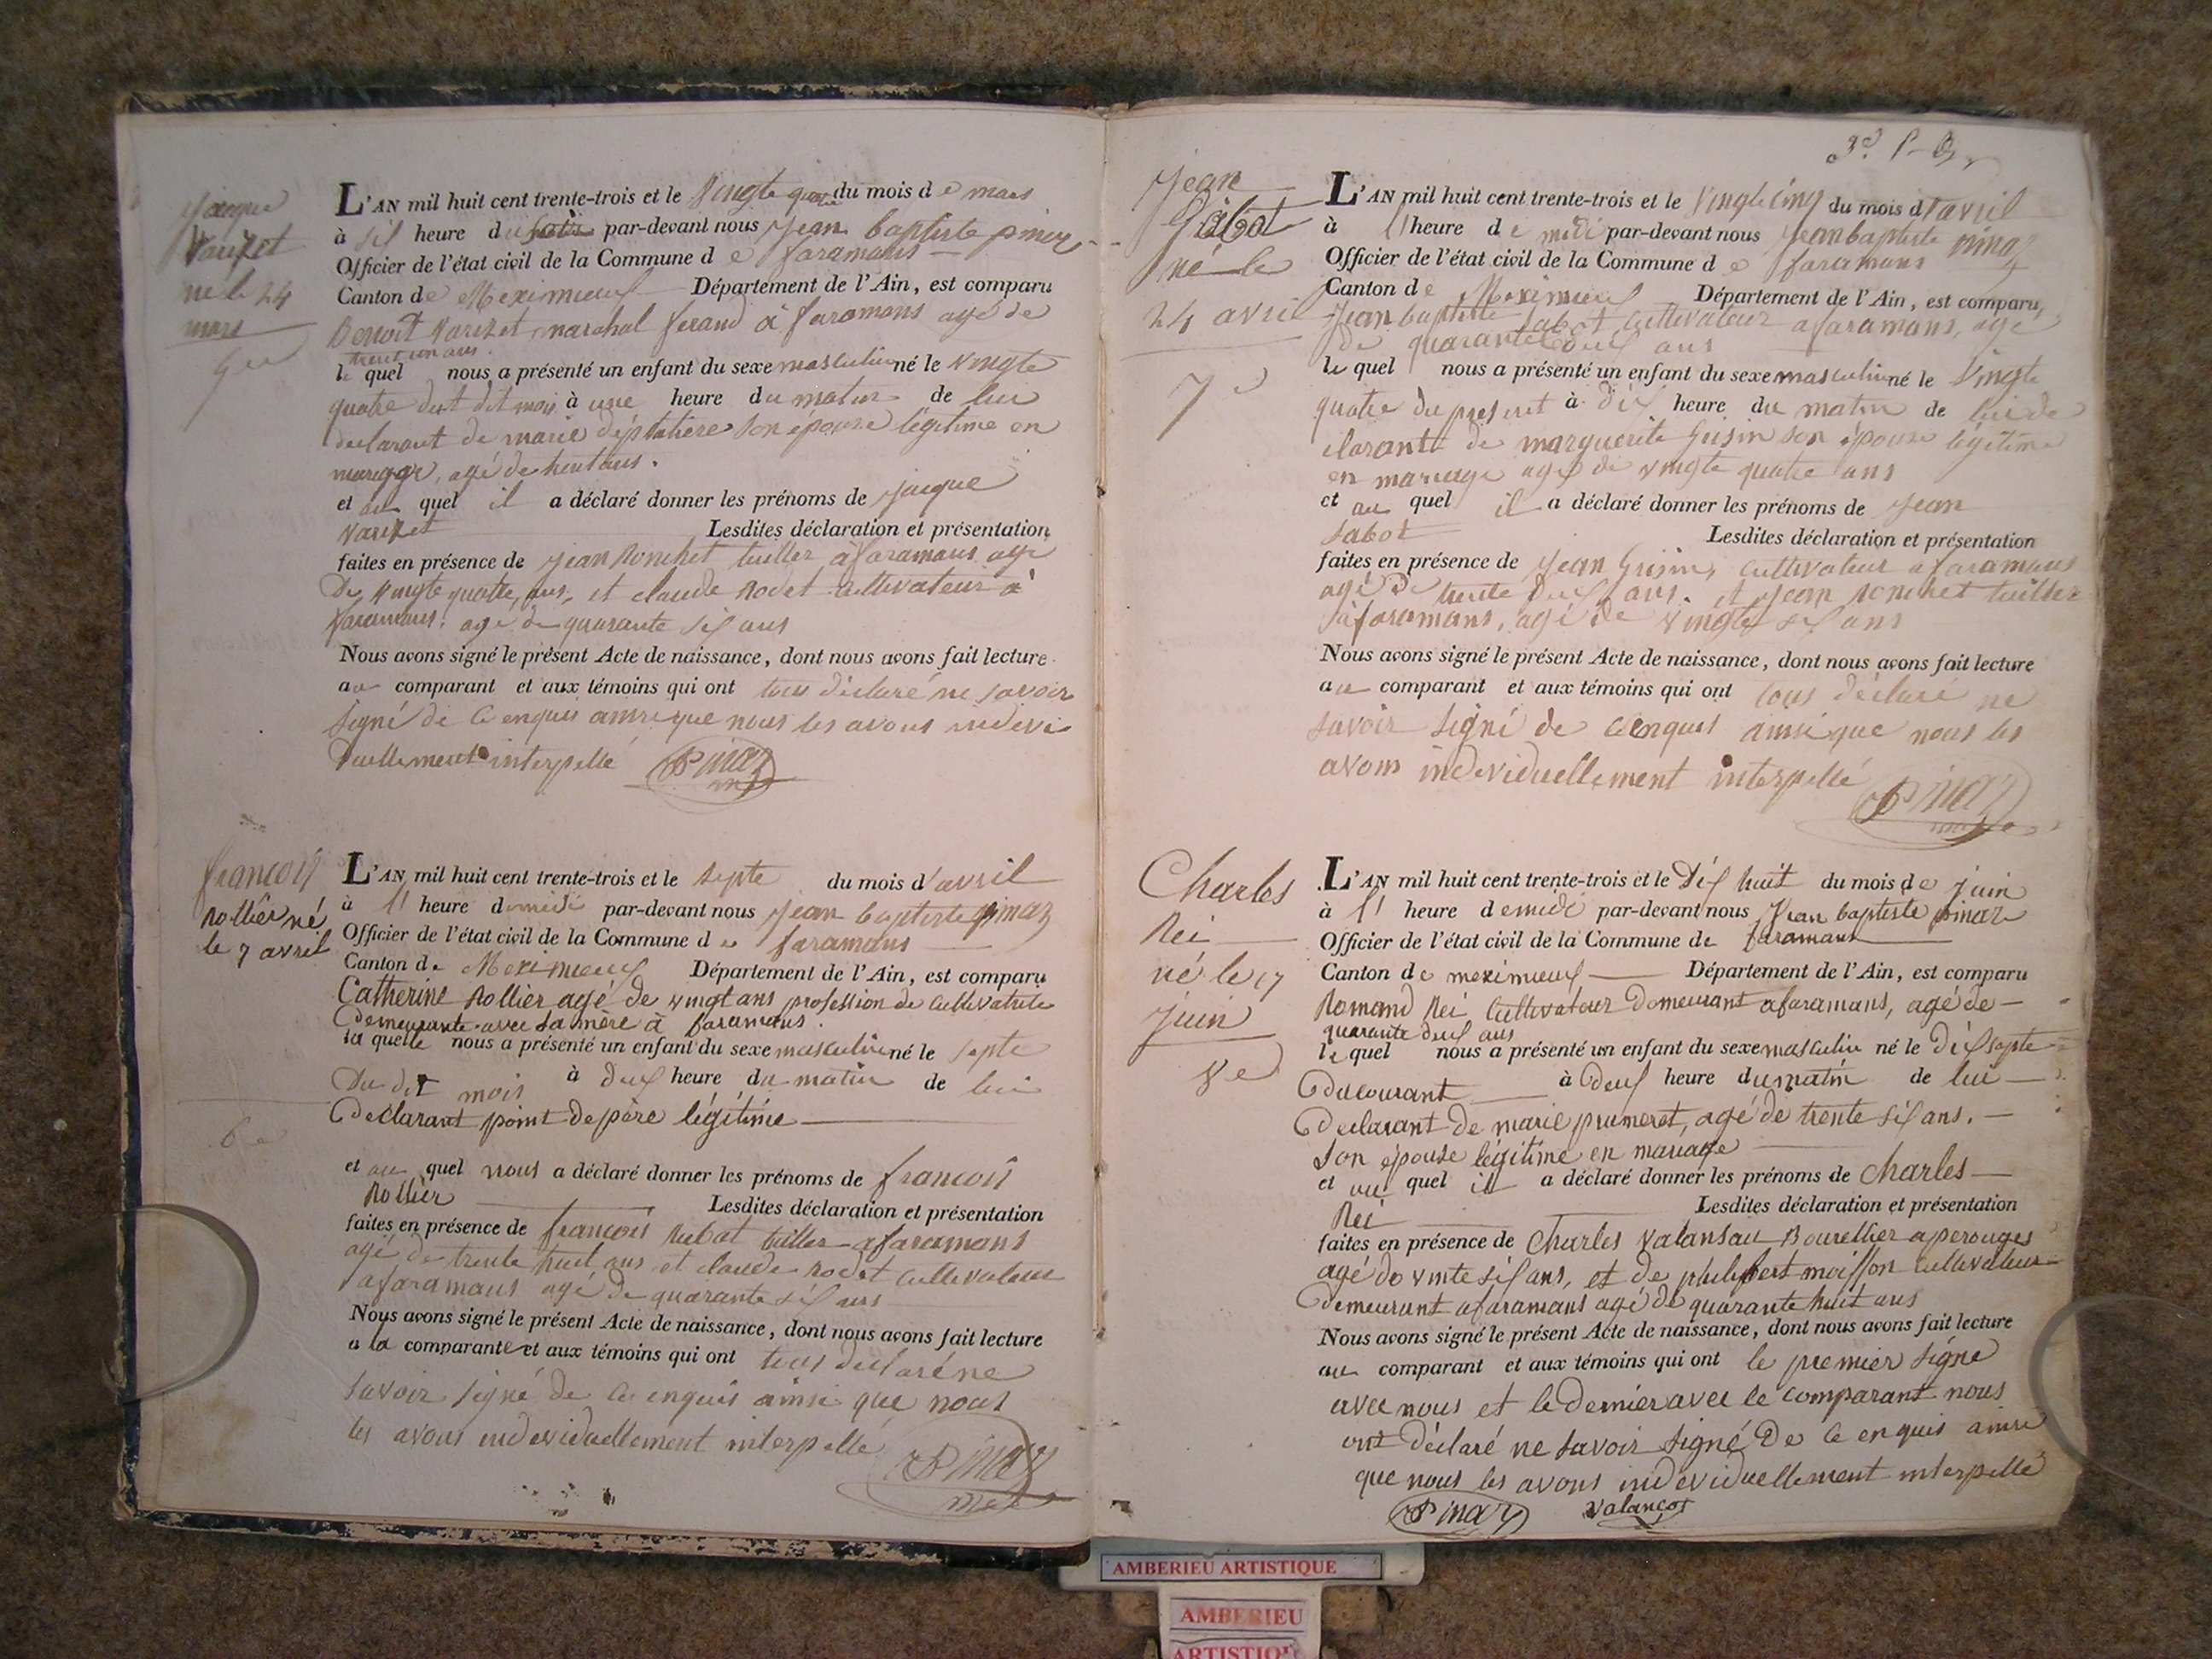 Jacque
né le 24
mars
L'AN mil huit cent trente-trois et le Vingte quatre du mois de mars
à six heure du par-devant nous Jean baptiste pinaz
Officier de l'état civil de la Commune de faramans
Canton de Meximieux Département de l'Ain, est comparu
Benoit marchal ferand à faramans agé de
trent un ans
le quel nous a présenté un enfant du sexe masculin né le vingte
quatre dudit mois à une heure du matin de lui
declarant de marie son épouse légitime en
mariage, agé de huit ans.
et au quel il a déclaré donner les prénoms de Jacque
Lesdites déclaration et présentation
faites en présence de Jean Ronchet tuiller à faramans agé
De Vingte quatre, ans, et claude Rodet cultivateur à
faramans. agé de quarante six ans
Nous avons signé le présent Acte de naissance, dont nous avons fait lecture
au comparant et aux témoins qui ont tous déclaré ne savoir
signé de ce enquis ainsi que nous les avons indevi
duellement interpellé Pinaz
françois
Rollier né
le 7 avril
6e
L'AN mil huit cent trente-trois et le septe du mois d'avril
à 11 heure de midi par-devant nous Jean baptiste pinaz
Officier de l'état civil de la Commune de faramans
Canton de Meximieux Département de l'Ain, est comparu
Catherine Rollier agé de vingt ans profession de cultivatrite
Demeurante avec sa mère à faramans.
la quelle nous a présenté un enfant du sexe masculin né le septe
Du dit mois à deux heure du matin de lui
Declarant point de père légitime
et au quel nous a déclaré donner les prénoms de françois
Rollier Lesdites déclaration et présentation
faites en présence de françois Rubat tuiller a faramans
agé de trente huit ans et claude Rodet cultivateur
a faramans agé de quarante six ans
Nous avons signé le présent Acte de naissance, dont nous avons fait lecture
a la comparante et aux témoins qui ont tous declaré ne
savoir signé de ce enquis ainsi que nous
les avons indeviduellement interpellé
Pinaz
Jean
Sabot
né le
24 avril
7e
L'AN mil huit cent trente-trois et le Vingt cinq du mois d'avril
à 11 heure de midi par-devant nous Jean baptiste pinaz
Officier de l'état civil de la Commune de faramans
Canton de Meximieux Département de l'Ain, est comparu
Jean baptiste Sabot cultivateur a faramans, agé
de quarante deux ans
le quel nous a présenté un enfant du sexe masculin né le Vingte
quatre du present à dix heure du matin de lui de
clarant de marguerite Grisin son épouse légitime
en mariage agé de vingte quatre ans
et au quel il a déclaré donner les prénoms de Jean
Sabot Lesdites déclaration et présentation
faites en présence de Jean Grisin, cultivateur a faramans
agé De trente deux ans. et Jean Ronchet tuiller
à faramans, agé de vingte six ans
Nous avons signé le présent Acte de naissance, dont nous avons fait lecture
au comparant et aux témoins qui ont tous déclaré ne
savoir signé de ce enquis ainsi que nous les
avons indeviduellement interpellé
Pinaz
Charles
Rei
né le 17
Juin
8e
L'AN mil huit cent trente-trois et le Dix huit du mois de juin
à 11 heure de midi par-devant nous Jean baptiste pinaz
Officier de l'état civil de la Commune de faramans
Canton de meximieux Département de l'Ain, est comparu
Romand Rei Cultivateur Demeurant a faramans, agé de
quarante deux ans
le quel nous a présenté un enfant du sexe masculin né le Dix septe
Du courant à Deux heure du matin de lui
Declarant De marie prumeret, agé de trente six ans.
son épouse légitime en mariage
et au quel il a déclaré donner les prénoms de Charles
Rei Lesdites déclaration et présentation
faites en présence de Charles Valansau Bourellier a perouges
agé de vinte six ans, et de philibert moisson cultivateur
Demeurant a faramans agé de quarante huit ans
Nous avons signé le présent Acte de naissance, dont nous avons fait lecture
au comparant et aux témoins qui ont le premier signé
avec nous et le Dernier avec le comparant nous
ont déclaré ne savoir signé De ce enquis ainsi
que nous les avons indeviduellement interpellé
Pinaz Valançot
AMBERIEU ARTISTIQUE
AMBERIEU
ARTISTIQUE